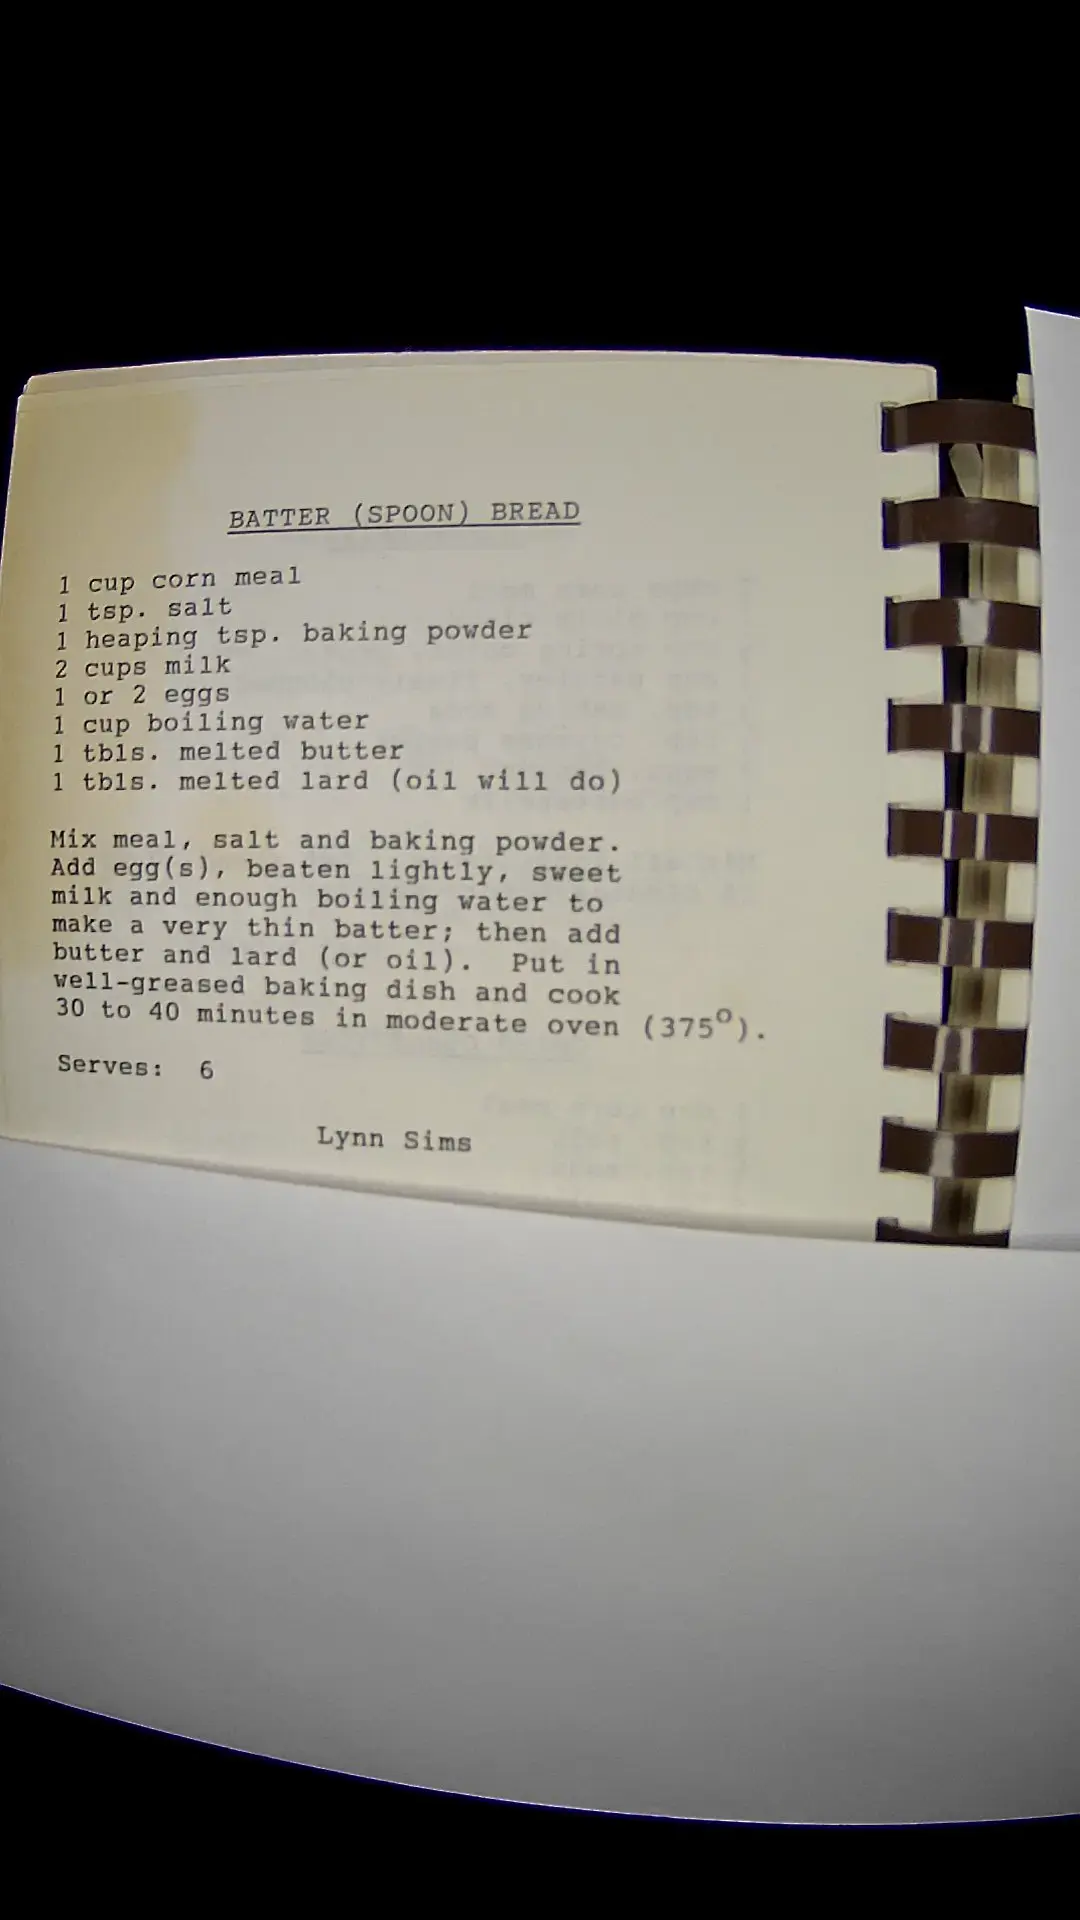 BATTER (SPOON) BREAD
1 cup corn meal
1 tsp. salt
1 heaping tsp. baking powder
2 cups milk
1 or 2 eggs
1 cup boiling water
1 tbls. melted butter
1 tbls. melted lard (oil will do)
Mix meal, salt and baking powder.
Add egg(s), beaten lightly, sweet
milk and enough boiling water to
make a very thin batter; then add
butter and lard (or oil).  Put in
well-greased baking dish and cook
30 to 40 minutes in moderate oven (375°).
Serves:  6
Lynn Sims